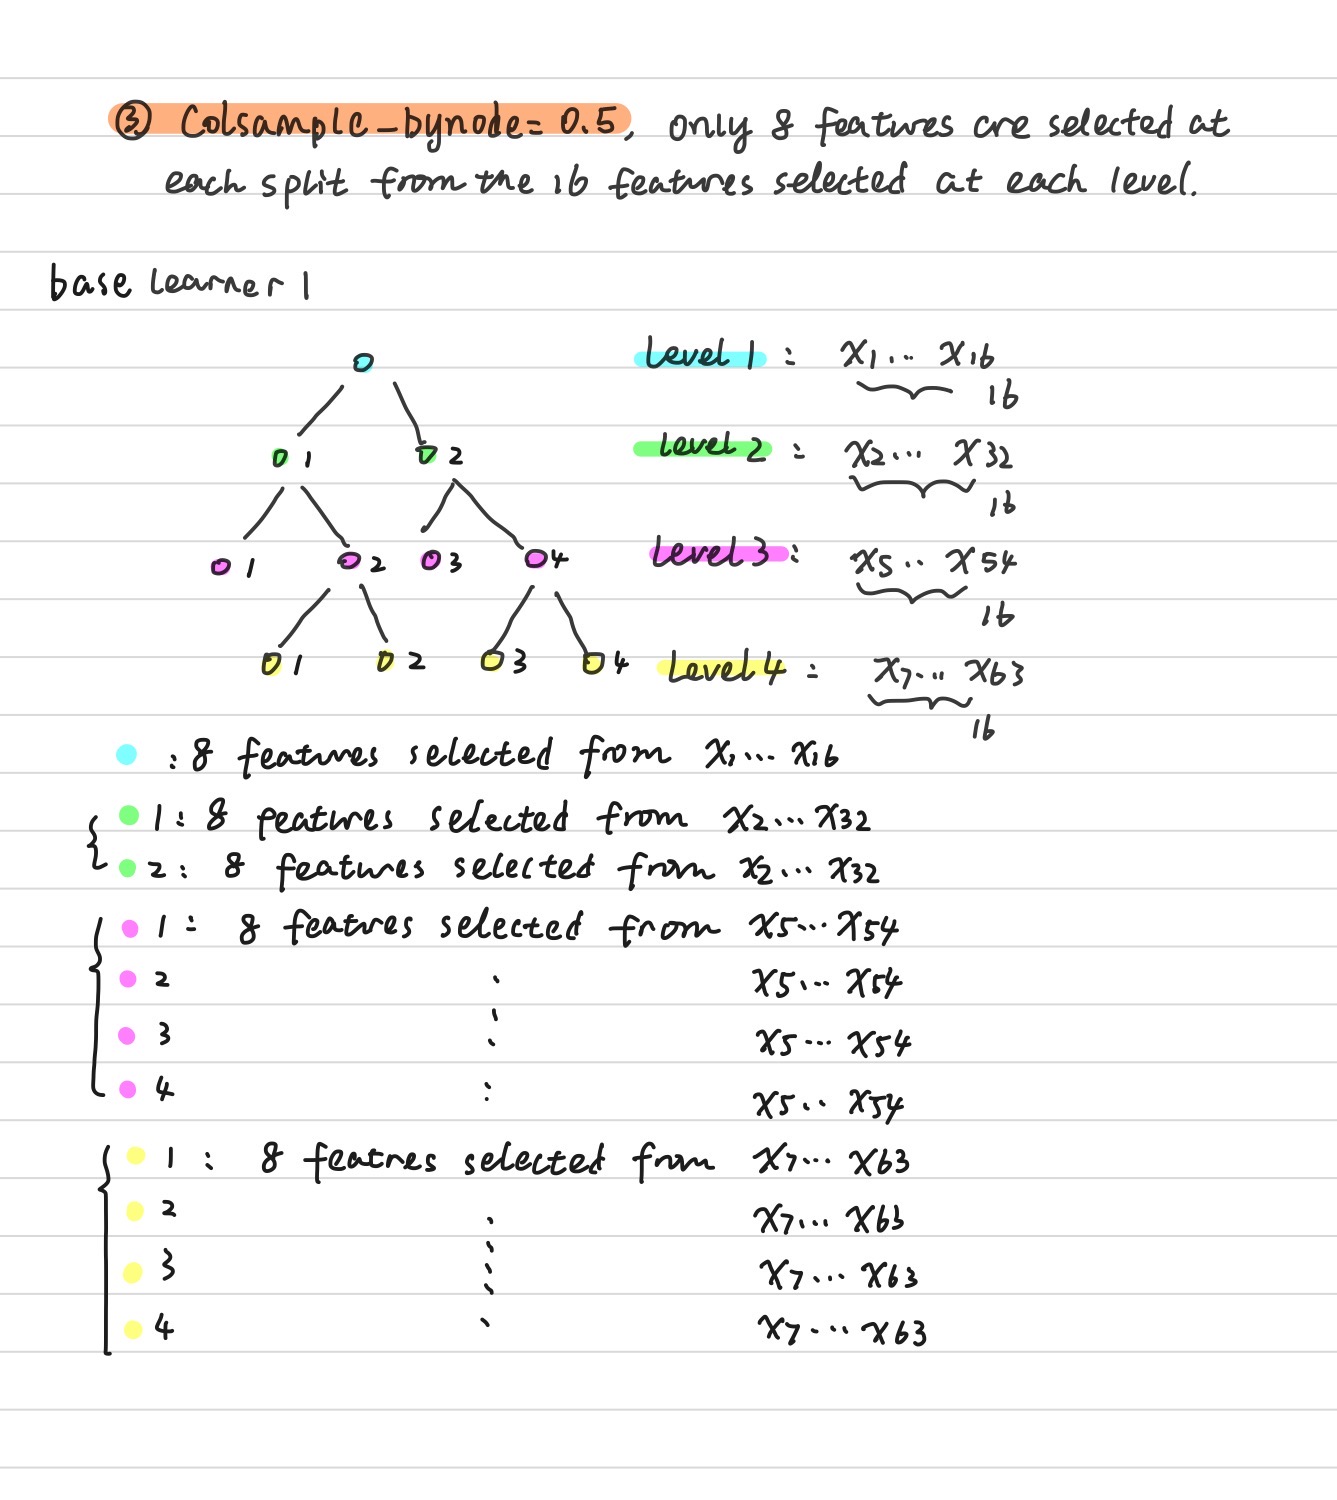 ③ Colsample-bynode= 0.5, only 8 features are selected at
each split from the 16 features selected at each level.
base learner 1
Level 1 : x1... x16
16
1 2
Level 2 : x2... x32
16
1 2 3 4
Level 3 : x5.. x54
16
1 2 3 4
Level 4 : x7... x63
16
: 8 features selected from x1... x16
1 : 8 features selected from x2... x32
2 : 8 features selected from x2... x32
1 : 8 featres selected from x5... x54
2 x5... x54
3 x5... x54
4 x5.. x54
1 : 8 featres selected from x7... x63
2 x7... x63
3 x7... x63
4 x7... x63